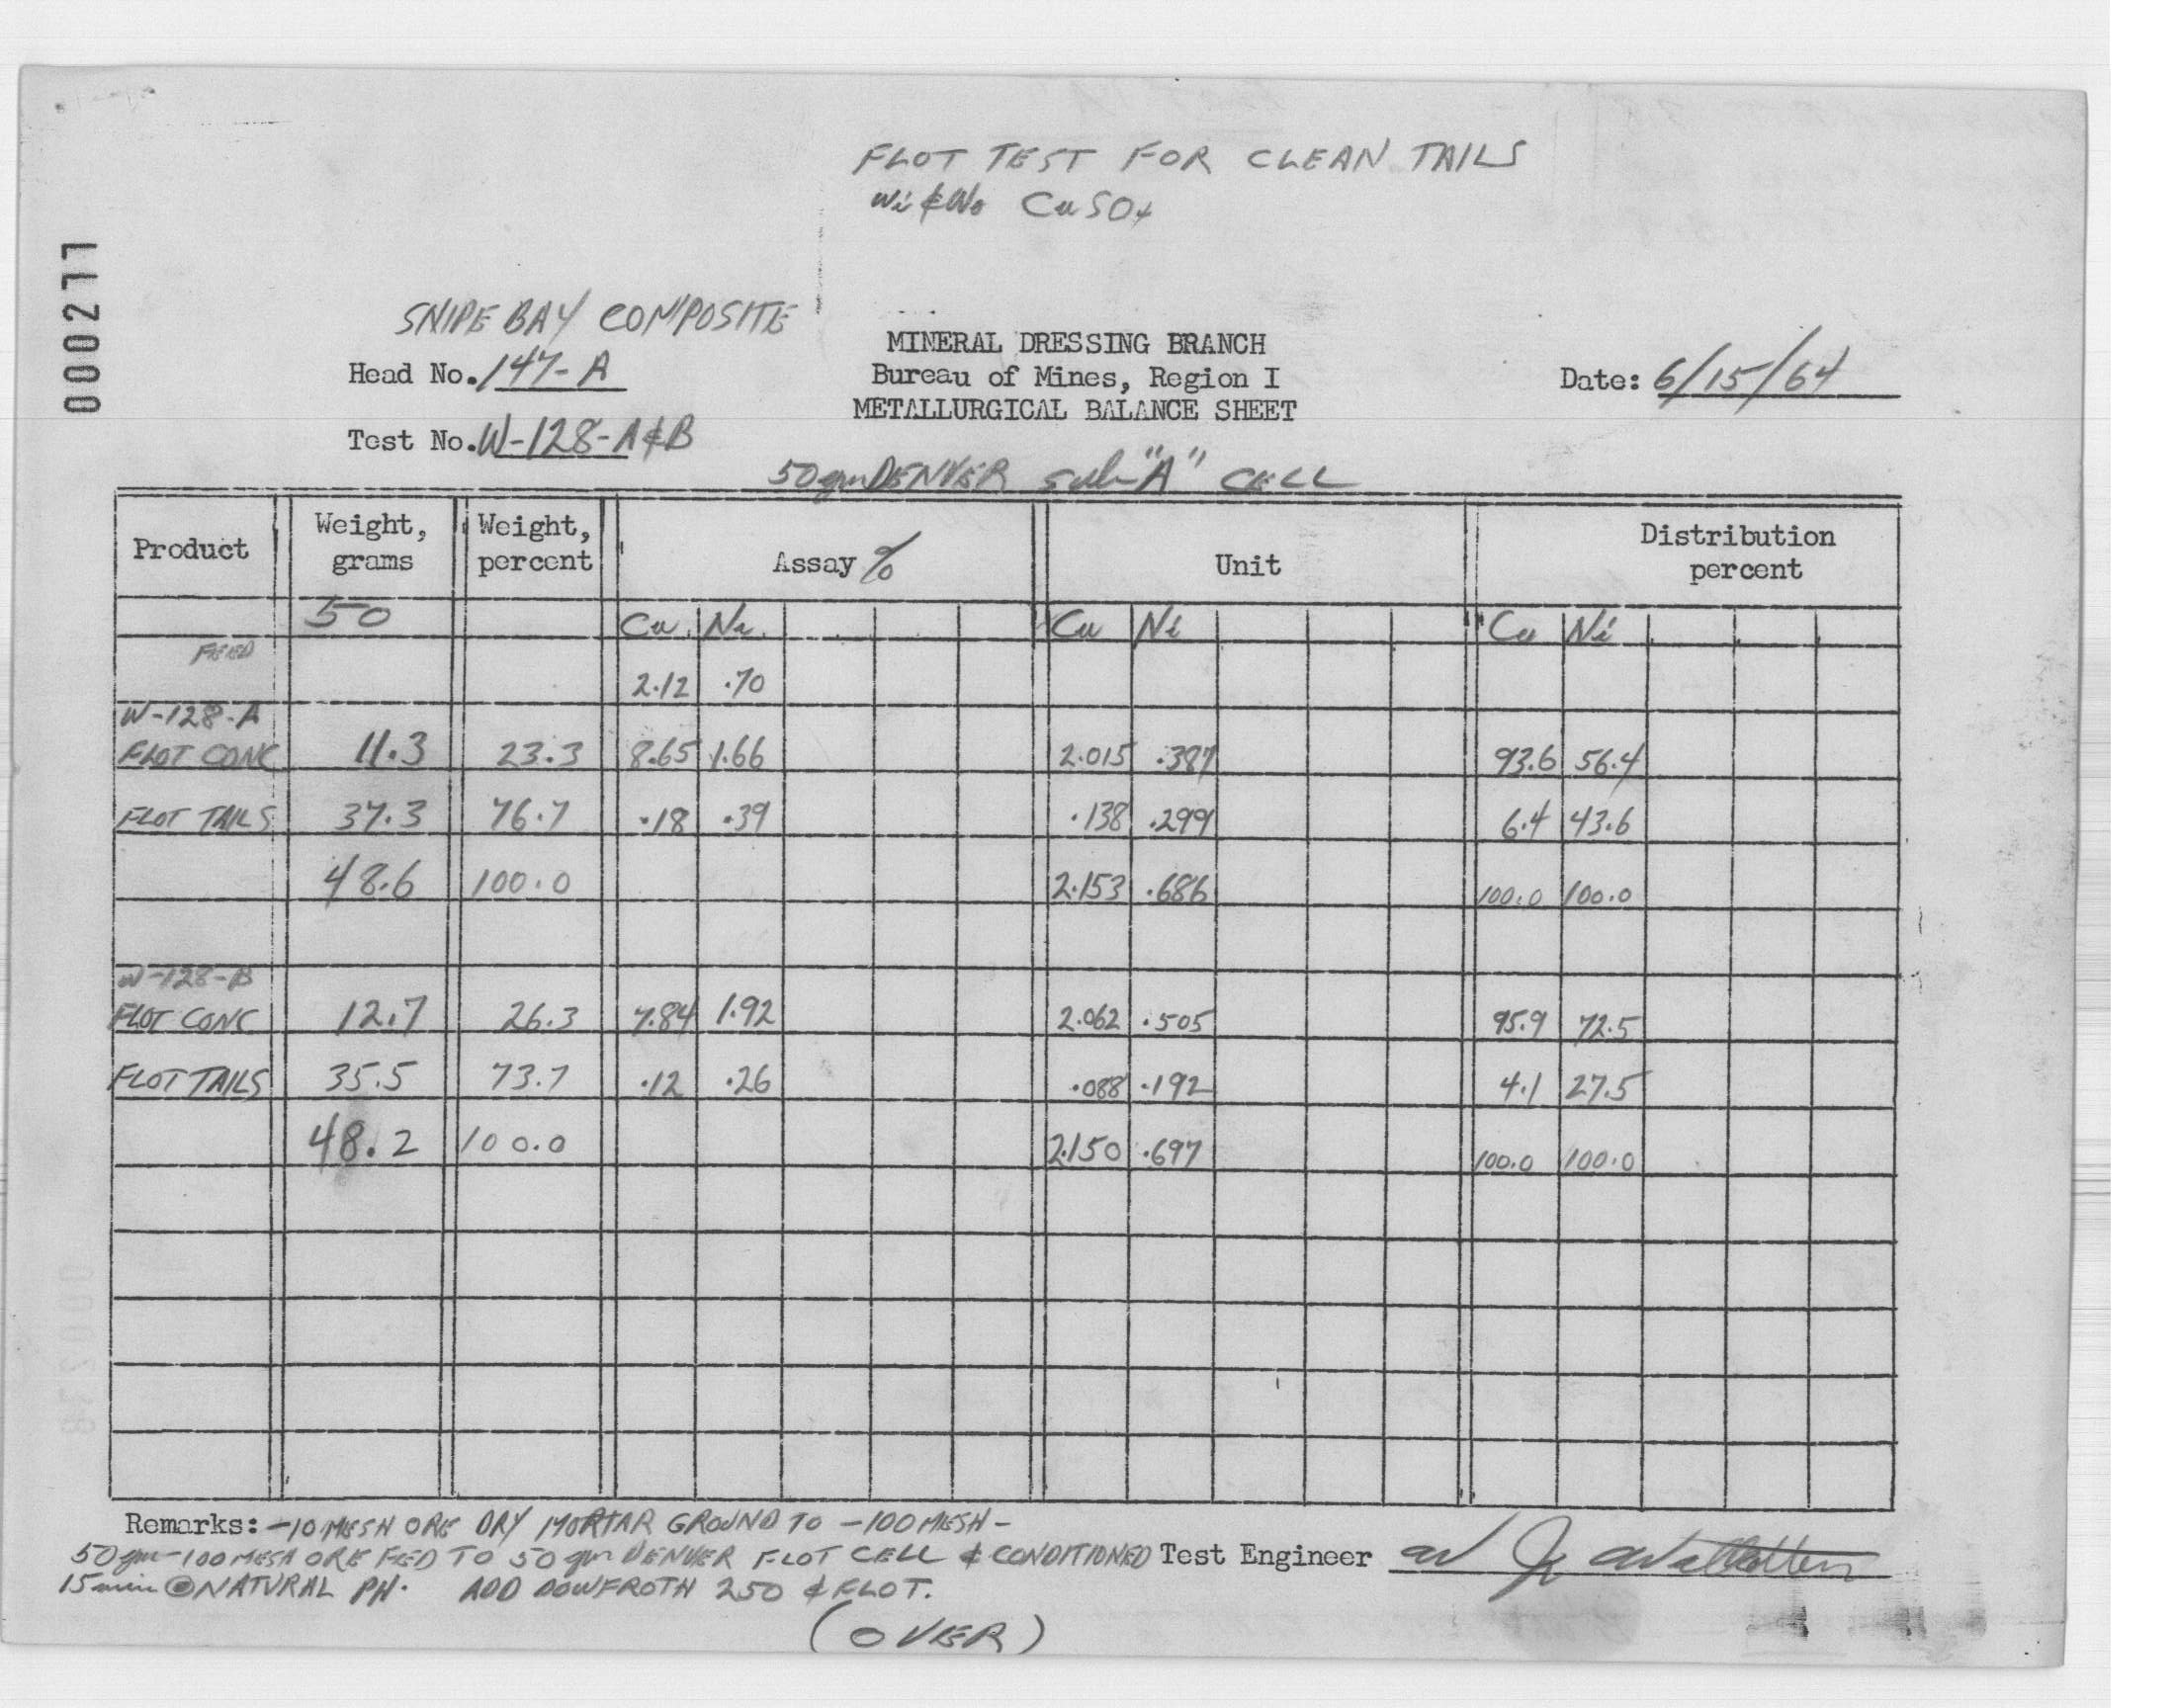 FLOT TEST FOR CLEAN TAILS
Wi & Wo CuSO4
000277
SNIPE BAY COMPOSITE
Head No. 147-A
MINERAL DRESSING BRANCH
Bureau of Mines, Region I
METALLURGICAL BALANCE SHEET
Date: 6/15/64
Test No. W-128-A&B
50gm DENVER sub "A" CELL
Product Weight, grams Weight, percent Assay % Unit Distribution percent
50 Cu Ni Cu Ni Cu Ni
FEED 2.12 .70
W-128-A
FLOT CONC 11.3 23.3 8.65 1.66 2.015 .387 93.6 56.4
FLOT TAILS 37.3 76.7 .18 .39 .138 .299 6.4 43.6
48.6 100.0 2.153 .686 100.0 100.0
W-128-B
FLOT CONC 12.7 26.3 7.84 1.92 2.062 .505 95.9 72.5
FLOT TAILS 35.5 73.7 .12 .26 .088 .192 4.1 27.5
48.2 100.0 2.150 .697 100.0 100.0
Remarks: -10 MESH ORE DRY MORTAR GROUND TO -100 MESH-
50 gm -100 MESH ORE FED TO 50 gm DENVER FLOT CELL & CONDITIONED Test Engineer
15 min @ NATURAL PH. ADD DOWFROTH 250 & FLOT.
(OVER)